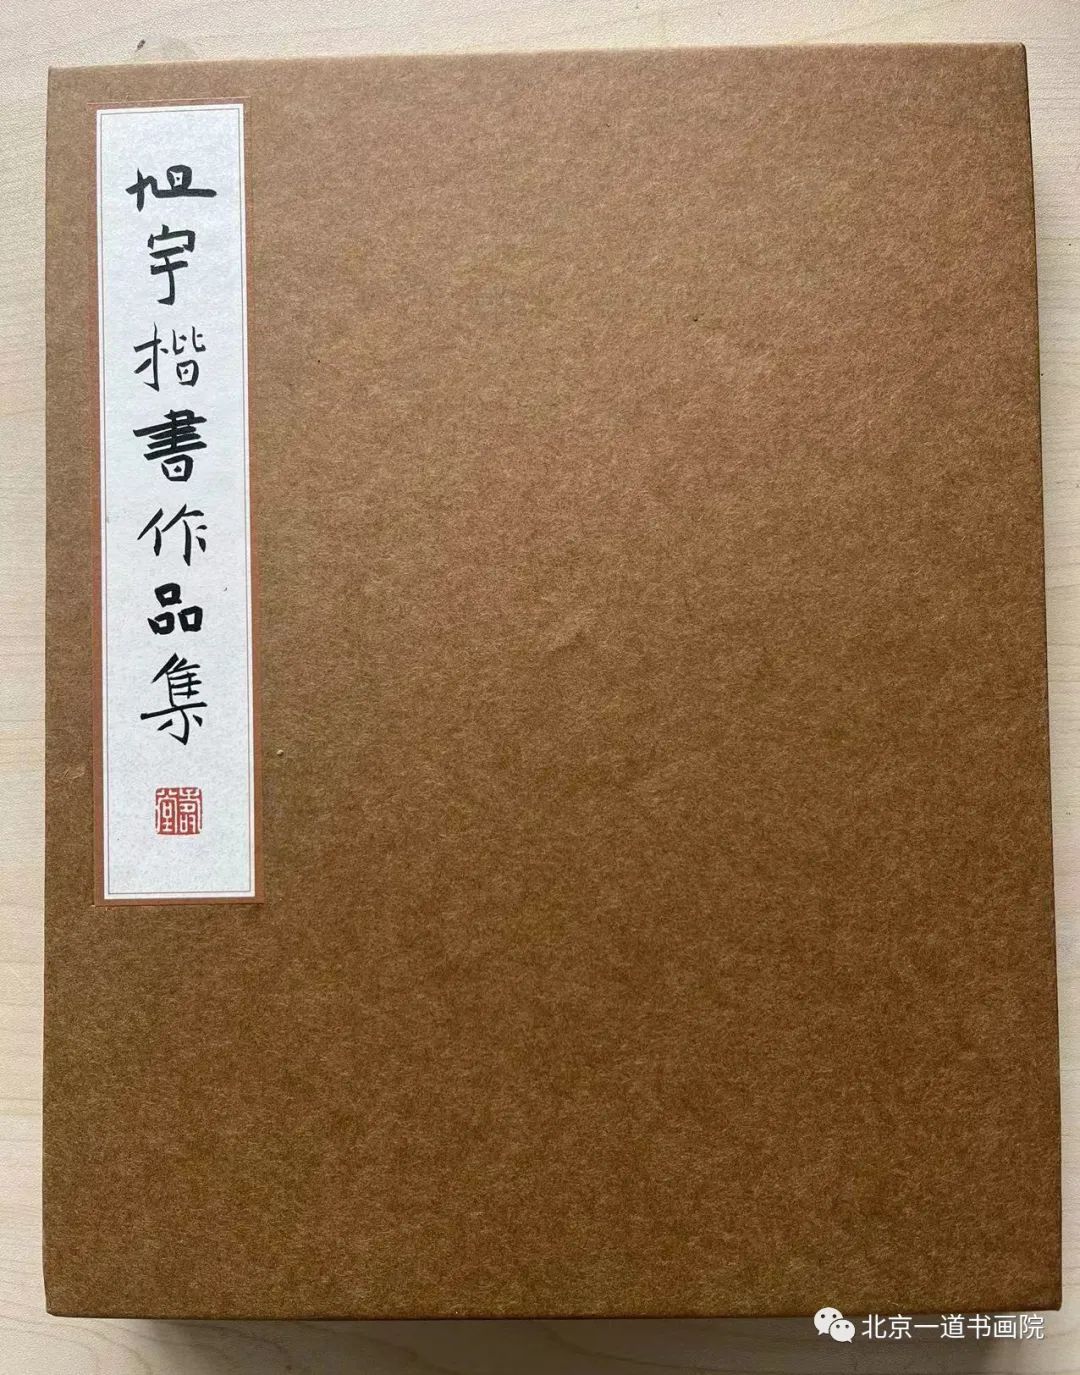 旭宇楷書作品集
北京一道书画院